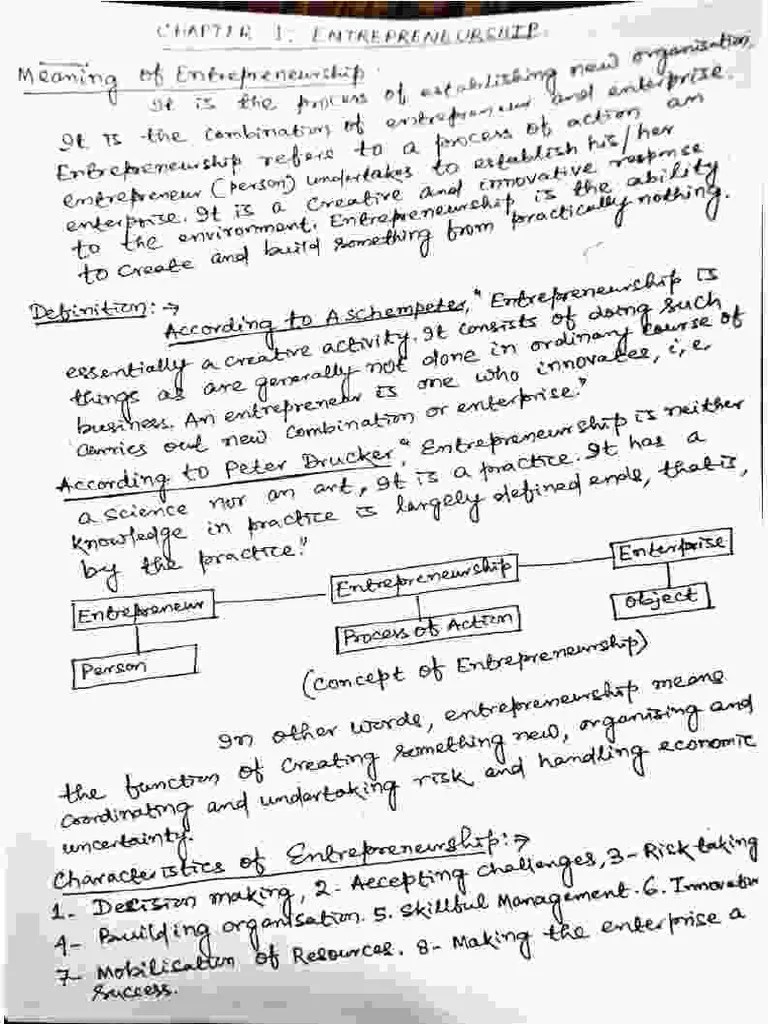 CHAPTER 1. ENTREPRENEURSHIP
Meaning of Entrepreneurship
It is the process of establishing new organisation.
It is the combination of entrepreneur and enterprise.
Entrepreneurship refers to a process of action an
entrepreneur (person) undertakes to establish his/her
enterprise. It is a creative and innovative response
to the environment. Entrepreneurship is the ability
to create and build something from practically nothing.
Definition:→
According to A schempeter, "Entrepreneurship is
essentially a creative activity. It consists of doing such
things as are generally not done in ordinary course of
business. An entrepreneur is one who innovates, i,e.
carries out new combination or enterprise."
According to Peter Drucker, "Entrepreneurship is neither
a science nor an art, It is a practice. It has a
knowledge in practice is largely defined ends, that is,
by the practice."
Entrepreneur Entrepreneurship Enterprise
Person Process of Action Object
(Concept of Entrepreneurship)
In other words, entrepreneurship means
the function of creating something new, organising and
coordinating and undertaking risk and handling economic
uncertainty.
Characteristics of Entrepreneurship:→
1- Decision making, 2- Accepting challenges, 3- Risk taking
4- Building organisation. 5. Skillful Management. 6. Innovation
7- Mobilisation of Resources. 8- Making the enterprise a
success.